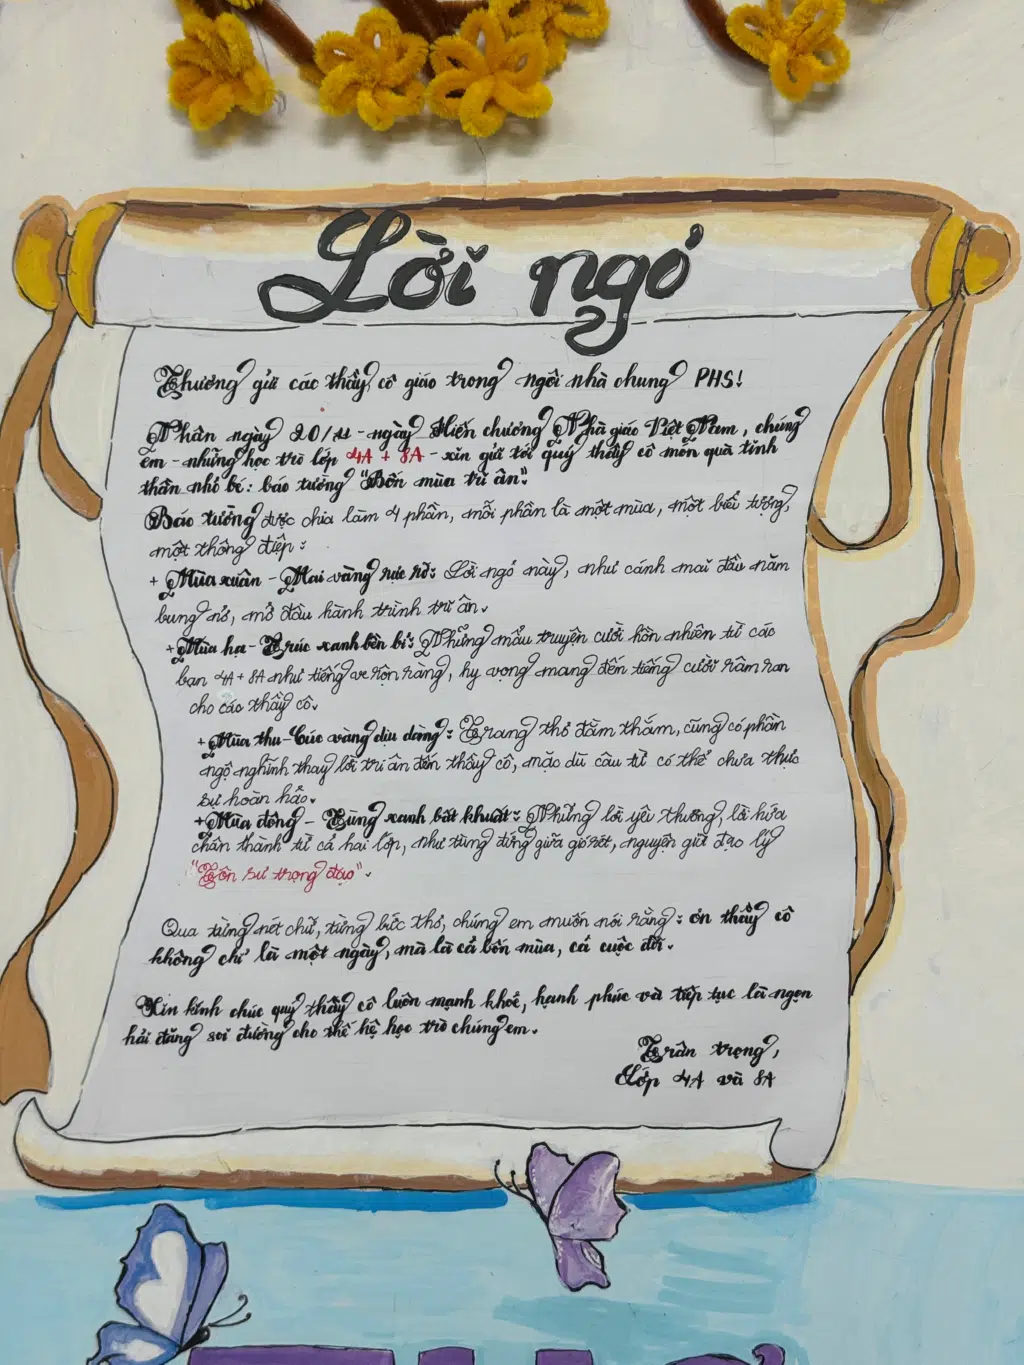 Lời ngỏ
Thương gửi các thầy cô giáo trong ngôi nhà chung PHS!
Nhân ngày 20/11 - ngày Hiến chương Nhà giáo Việt Nam, chúng
em - những học trò lớp 4A + 8A - xin gửi tới quý thầy cô món quà tinh
thần nhỏ bé: báo tường "Bốn mùa tri ân".
Báo tường được chia làm 4 phần, mỗi phần là một mùa, một biểu tượng,
một thông điệp:
+ Mùa xuân - Mai vàng rực rỡ: Lời ngỏ này, như cánh mai đầu năm
bung nở, mở đầu hành trình tri ân.
+ Mùa hạ - Trúc xanh bền bỉ: Những mẩu truyện cười hồn nhiên từ các
bạn 4A + 8A như tiếng ve rộn ràng, hy vọng mang đến tiếng cười râm ran
cho các thầy cô.
+ Mùa thu - Cúc vàng dịu dàng: Trang thơ đằm thắm, cũng có phần
ngộ nghĩnh thay lời tri ân đến thầy cô, mặc dù câu từ có thể chưa thực
sự hoàn hảo.
+ Mùa đông - Tùng xanh bất khuất: Những lời yêu thương, lời hứa
chân thành từ cả hai lớp, như tùng đứng giữa gió rét, nguyện giữ đạo lý
"Tôn sư trọng đạo".
Qua từng nét chữ, từng bức thơ, chúng em muốn nói rằng: ơn thầy cô
không chỉ là một ngày, mà là cả bốn mùa, cả cuộc đời.
Xin kính chúc quý thầy cô luôn mạnh khoẻ, hạnh phúc và tiếp tục là ngọn
hải đăng soi đường cho thế hệ học trò chúng em.
Trân trọng,
Lớp 4A và 8A